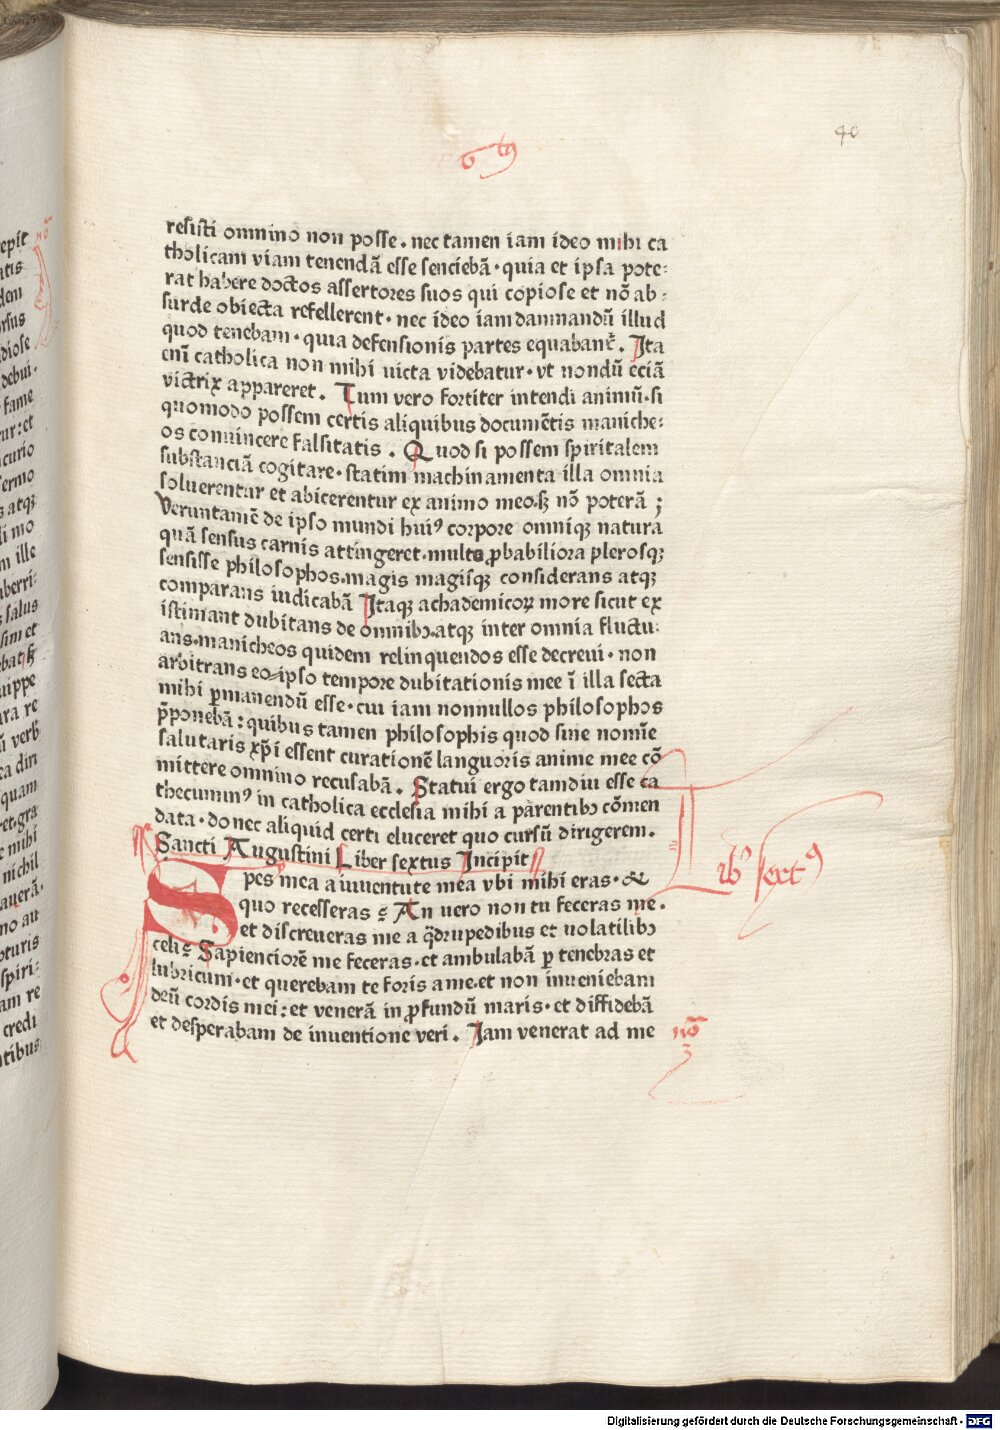 40
6tꝰ
resisti omnino non posse. nec tamen iam ideo mihi ca
tholicam viam tenendā esse senciebā. quia et ipsa pote⸗
rat habere doctos assertores suos qui copiose et nō ab⸗
surde obiecta refellerent. nec ideo iam damnandū illud
quod tenebam. quia defensionis partes equabanĩ. Ita
enī catholica non mihi uicta videbatur. vt nondū eciā
victrix appareret. Tum vero fortiter intendi animū. si
quomodo possem certis aliquibus documētis maniche⸗
os conuincere falsitatis. Quod si possem spiritalem
substanciā cogitare. statim machinamenta illa omnia
soluerentur et abicerentur ex animo meo. sꝫ nō poterā;
Veruntamē de ipso mundi huiꝰ corpore omniqꝫ natura
quā sensus carnis attingeret. multo ꝓbabiliora plerosqꝫ
sensisse philosophos. magis magisqꝫ considerans atqꝫ
comparans iudicabā Itaqꝫ achademicoꝝ more sicut ex
istimant dubitans de omnibꝫ. atqꝫ inter omnia fluctu⸗
ans. manicheos quidem relinquendos esse decreui. non
arbitrans eo ipso tempore dubitationis mee ī illa secta
mihi ꝑmanendū esse. cui iam nonnullos philosophos
p̄ponebā: quibus tamen philosophis quod sine nomīe
salutaris xp̄i essent curationē languoris anime mee cō
mittere omnino recusabā. Statui ergo tamdiu esse ca
thecuminꝰ in catholica ecclesia mihi a parentibꝫ cōmen
data. donec aliquid certi eluceret quo cursū dirigerem.
Sancti Augustini Liber sextus Incipit
Spes mea a iuuentute mea vbi mihi eras. &
quo recesseras? An uero non tu feceras me.
et discreueras me a q̄drupedibus et uolatilibꝫ
celi? Sapienciorē me feceras. et ambulabā ꝑ tenebras et
lubricum. et querebam te foris a me. et non inueniebam
deū cordis mei: et venerā in ꝓfundū maris. et diffidebā
et desperabam de inuentione veri. Iam venerat ad me
Libꝰ sextꝰ
nō
Digitalisierung gefördert durch die Deutsche Forschungsgemeinschaft - DFG